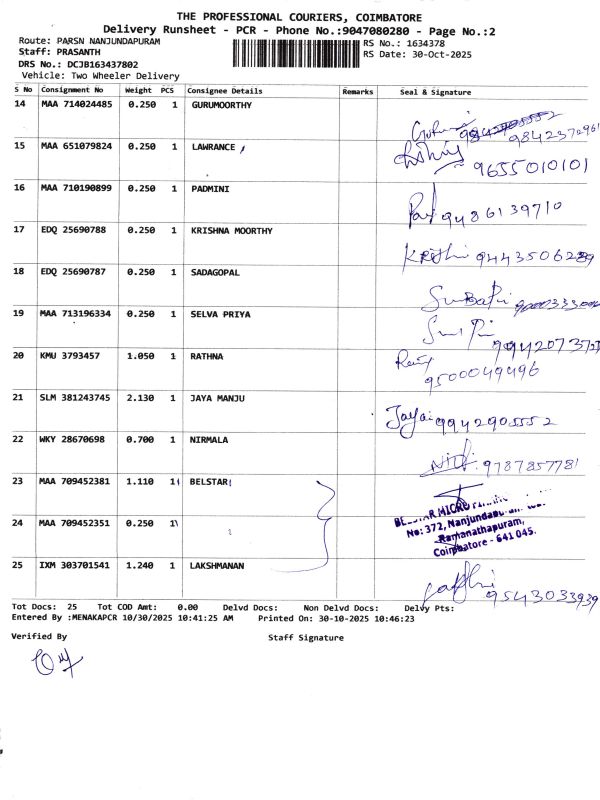 THE PROFESSIONAL COURIERS, COIMBATORE
Delivery Runsheet - PCR - Phone No.:9047080280 - Page No.:2
Route: PARSN NANJUNDAPURAM
RS No.: 1634378
Staff: PRASANTH
RS Date: 30-Oct-2025
DRS No.: DCJB163437802
Vehicle: Two Wheeler Delivery
S No Consignment No Weight PCS Consignee Details Remarks Seal & Signature
14 MAA 714024485 0.250 1 GURUMOORTHY
9842372961
15 MAA 651079824 0.250 1 LAWRANCE
9655010101
16 MAA 710190899 0.250 1 PADMINI
9486139710
17 EDQ 25690788 0.250 1 KRISHNA MOORTHY
9443506289
18 EDQ 25690787 0.250 1 SADAGOPAL
19 MAA 713196334 0.250 1 SELVA PRIYA
20 KMU 3793457 1.050 1 RATHNA
9500049496
21 SLM 381243745 2.130 1 JAYA MANJU
9942905552
22 WKY 28670698 0.700 1 NIRMALA
9787857781
23 MAA 709452381 1.110 1 BELSTAR
No: 372, Nanjundapuram
24 MAA 709452351 0.250 1
Ramanathapuram,
Coimbatore - 641 045.
25 IXM 303701541 1.240 1 LAKSHMANAN
9543033939
Tot Docs: 25 Tot COD Amt: 0.00 Delvd Docs: Non Delvd Docs: Delvy Pts:
Entered By :MENAKAPCR 10/30/2025 10:41:25 AM Printed On: 30-10-2025 10:46:23
Verified By Staff Signature